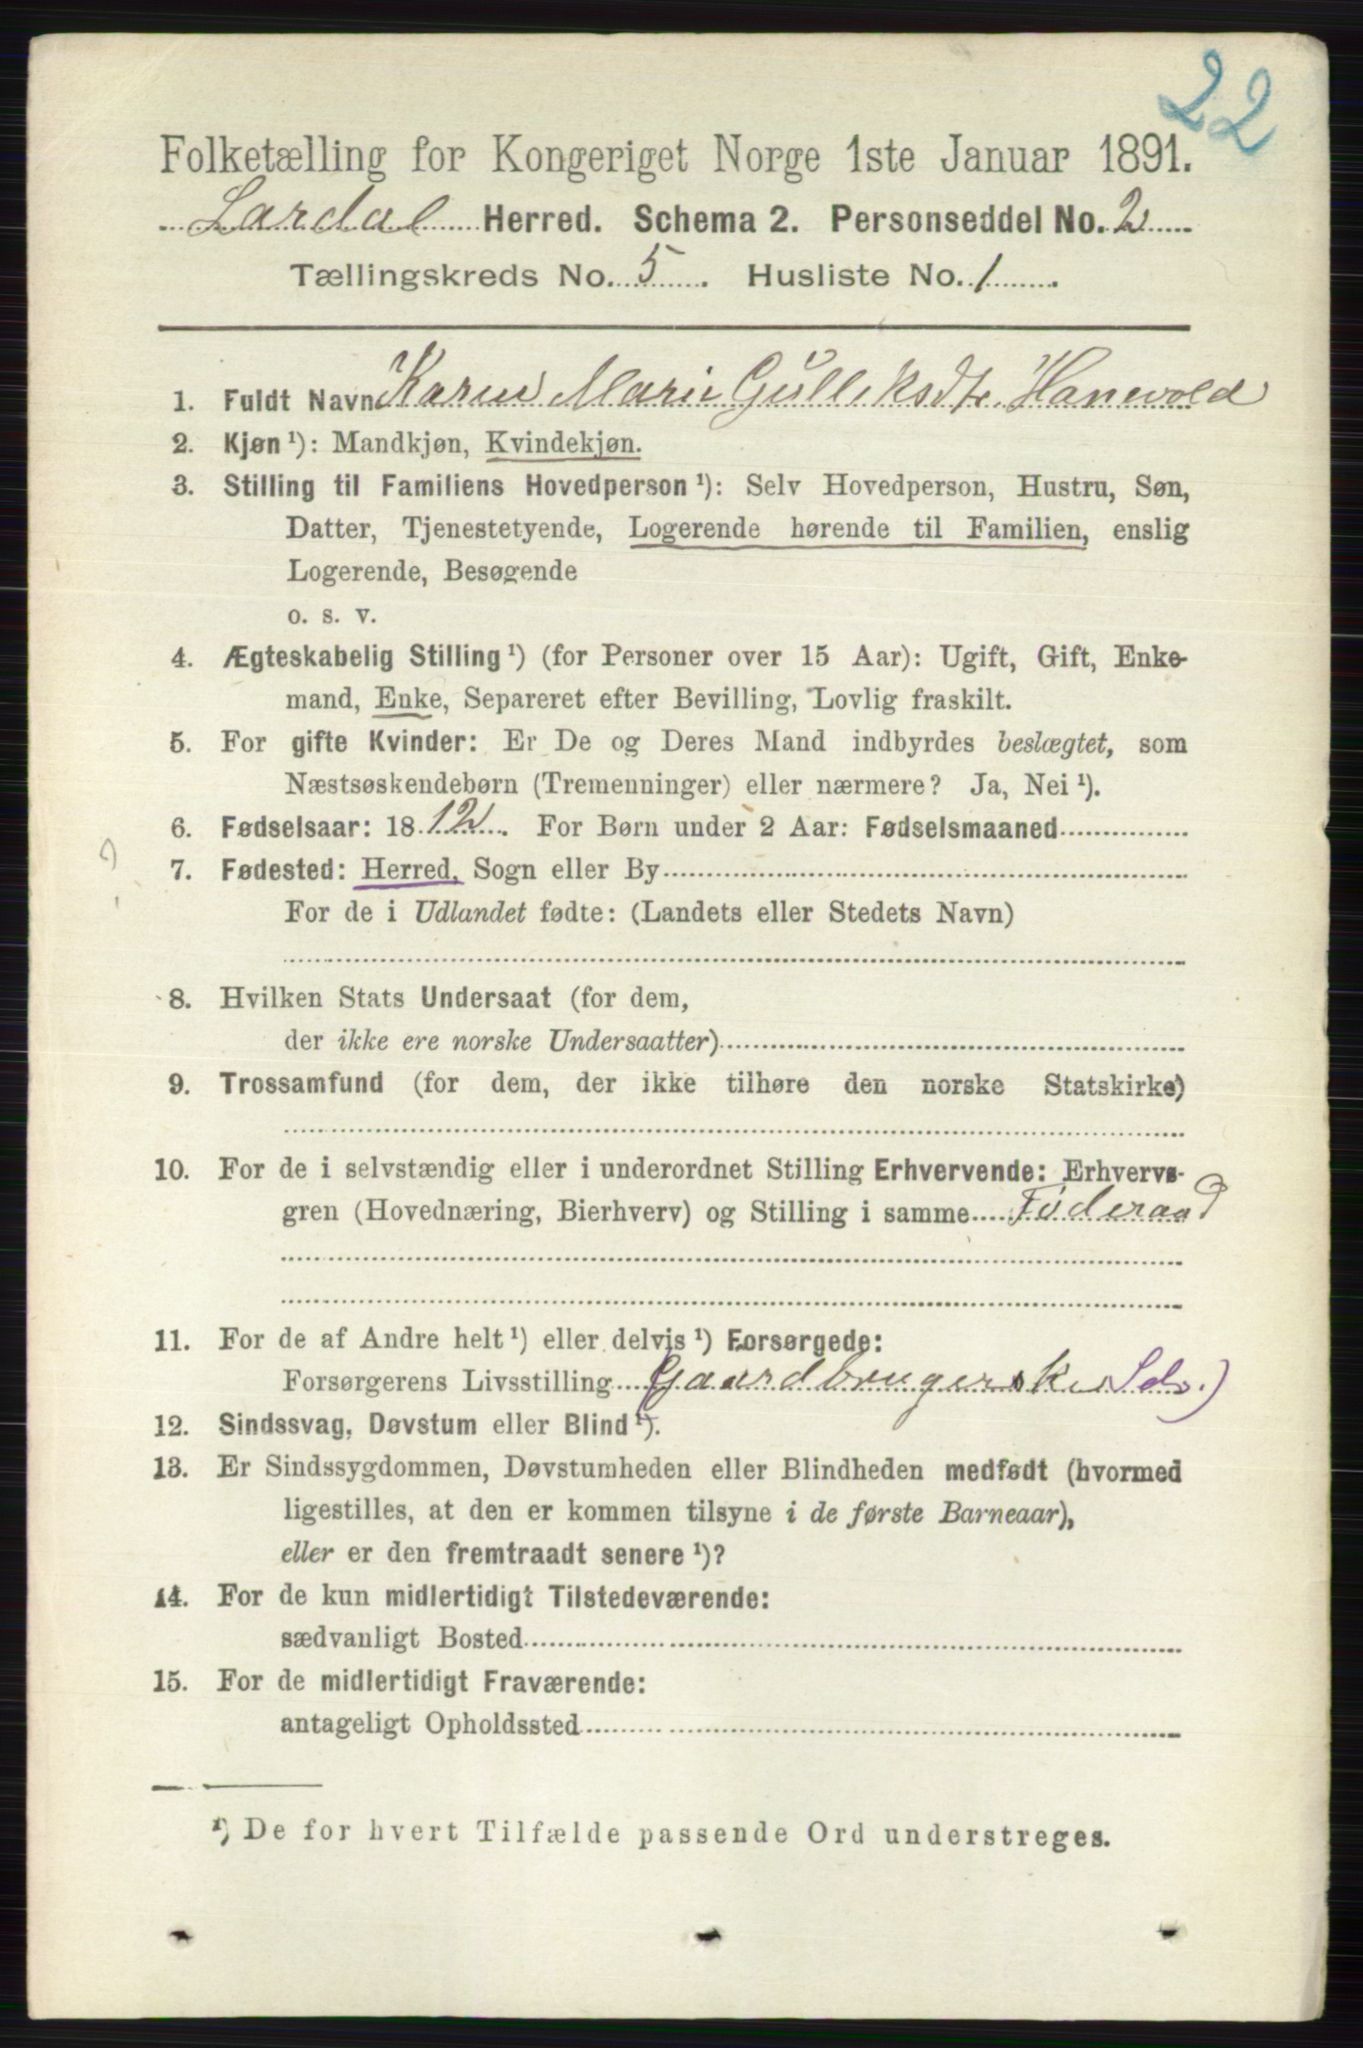 22
Folketælling for Kongeriget Norge 1ste Januar 1891.
Lardal Herred. Schema 2. Personseddel No. 2
Tællingskreds No. 5. Husliste No. 1.
1. Fuldt Navn Karen Marie Gulliksdtr. Hanevold
2. Kjøn ¹): Mandkjøn, Kvindekjøn.
3. Stilling til Familiens Hovedperson ¹): Selv Hovedperson, Hustru, Søn,
Datter, Tjenestetyende, Logerende hørende til Familien, enslig
Logerende, Besøgende
o. s. v.
4. Ægteskabelig Stilling ¹) (for Personer over 15 Aar): Ugift, Gift, Enke-
mand, Enke, Separeret efter Bevilling, Lovlig fraskilt.
5. For gifte Kvinder: Er De og Deres Mand indbyrdes beslægtet, som
Næstsøskendebørn (Tremenninger) eller nærmere? Ja, Nei ¹).
6. Fødselsaar: 1812. For Børn under 2 Aar: Fødselsmaaned
?
7. Fødested: Herred, Sogn eller By
For de i Udlandet fødte: (Landets eller Stedets Navn)
8. Hvilken Stats Undersaat (for dem,
der ikke ere norske Undersaatter)
9. Trossamfund (for dem, der ikke tilhøre den norske Statskirke)
10. For de i selvstændig eller i underordnet Stilling Erhvervende: Erhvervs-
gren (Hovednæring, Bierhverv) og Stilling i samme Føderaad
11. For de af Andre helt ¹) eller delvis ¹) Forsørgede:
Forsørgerens Livsstilling (Gaardbrugerske Sdv.)
12. Sindssvag, Døvstum eller Blind ¹).
13. Er Sindssygdommen, Døvstumheden eller Blindheden medfødt (hvormed
ligestilles, at den er kommen tilsyne i de første Barneaar),
eller er den fremtraadt senere ¹)?
14. For de kun midlertidigt Tilstedeværende:
sædvanligt Bosted
15. For de midlertidigt Fraværende:
antageligt Opholdssted
¹) De for hvert Tilfælde passende Ord understreges.